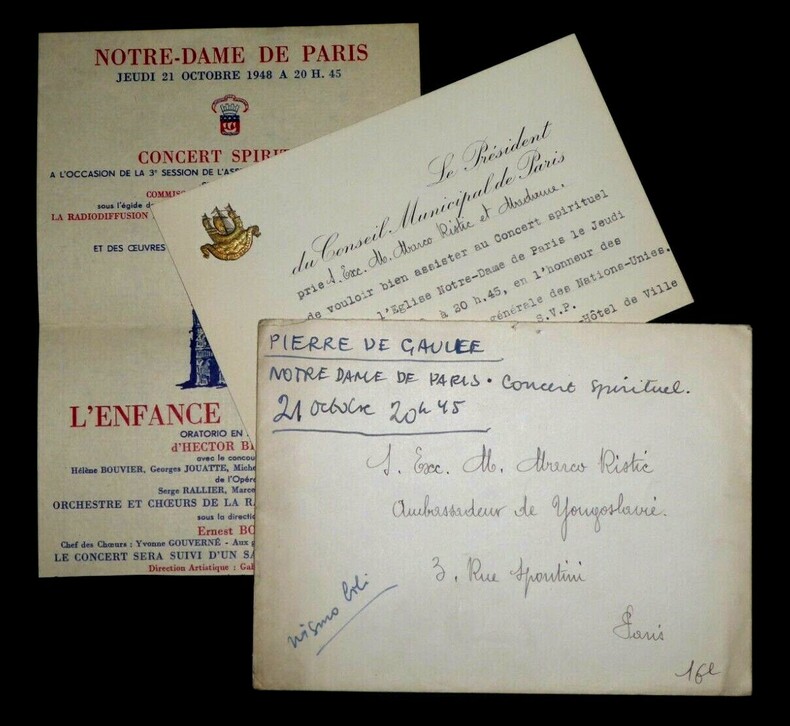 NOTRE-DAME DE PARIS
JEUDI 21 OCTOBRE 1948 A 20 H. 45
CONCERT SPIRIT
A L'OCCASION DE LA 3e SESSION DE L'ASS
COMMISS
sous l'égide d
LA RADIODIFFUSION
ET DES ŒUVRES
L'ENFANCE
ORATORIO EN
d'HECTOR BE
avec le concou
Hélène BOUVIER, Georges JOUATTE, Miche
de l'Opér
Serge RALLIER, Marce
ORCHESTRE ET CHŒURS DE LA RA
sous la directio
Ernest BO
Chef des Chœurs : Yvonne GOUVERNÉ - Aux g
LE CONCERT SERA SUIVI D'UN SA
Direction Artistique : Gab
Le Président
du Conseil Municipal de Paris
prie S. Exc. M. Marco Ristic et Madame,
de vouloir bien assister au Concert spirituel
l'Eglise Notre-Dame de Paris le Jeudi
à 20 h.45, en l'honneur des
générale des Nations-Unies.
S.V.P.
-Hôtel de Ville
PIERRE DE GAULLE
NOTRE DAME DE PARIS. Concert Spirituel.
21 Octobre 20h45
S. Exc. M. Marco Ristić
Ambassadeur de Yougoslavie.
3, Rue Spontini
Paris
nismo bili